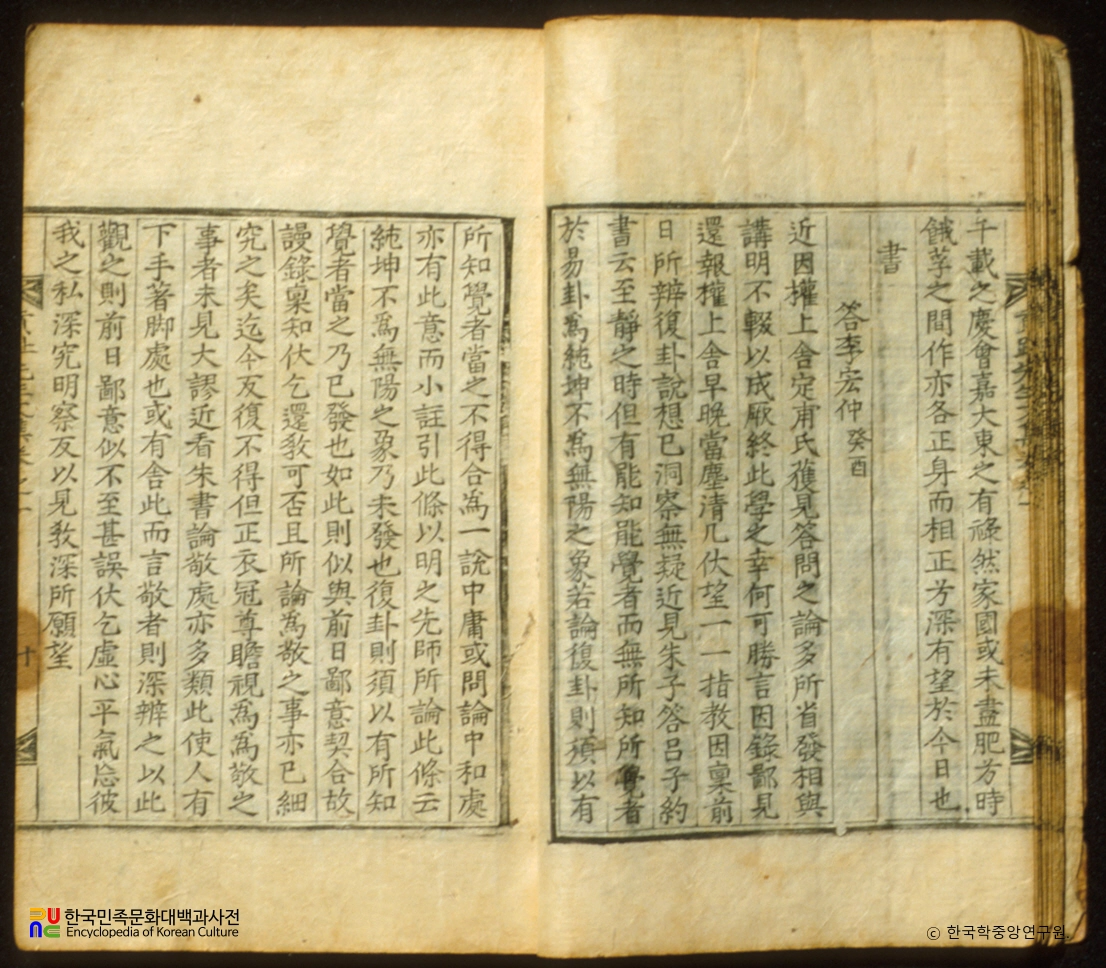 千載之慶會嘉大東之有祿然家國或未盡肥方時
餓莩之間作亦各正身而相正方深有望於今日也
書
答李宏仲 癸酉
近因權上舍定甫氏獲見答問之論多所省發相與
講明不輟以成厥終此學之幸何可勝言因錄鄙見
還報權上舍早晩當塵清几伏望一一指教因稟前
日所辨復卦說想已洞察無疑近見朱子答呂子約
書云至靜之時但有能知能覺者而無所知所覺者
於易卦爲純坤不爲無陽之象若論復卦則須以有
所知覺者當之不得合爲一說中庸或問論中和處
亦有此意而小註引此條以明之先師所論此條云
純坤不爲無陽之象乃未發也復卦則須以有所知
覺者當之乃已發也如此則似與前日鄙意契合故
謾錄稟知伏乞還敎可否且所論爲敬之事亦已細
究之矣迄今反復不得但正衣冠尊瞻視爲爲敬之
事者未見大謬近看朱書論敬處亦多類此使人有
下手著脚處也或有舍此而言敬者則深辨之以此
觀之則前日鄙意似不至甚誤伏乞虛心平氣忘彼
我之私深究明察反以見敎深所願望
十
한국민족문화대백과사전
Encyclopedia of Korean Culture
© 한국학중앙연구원.